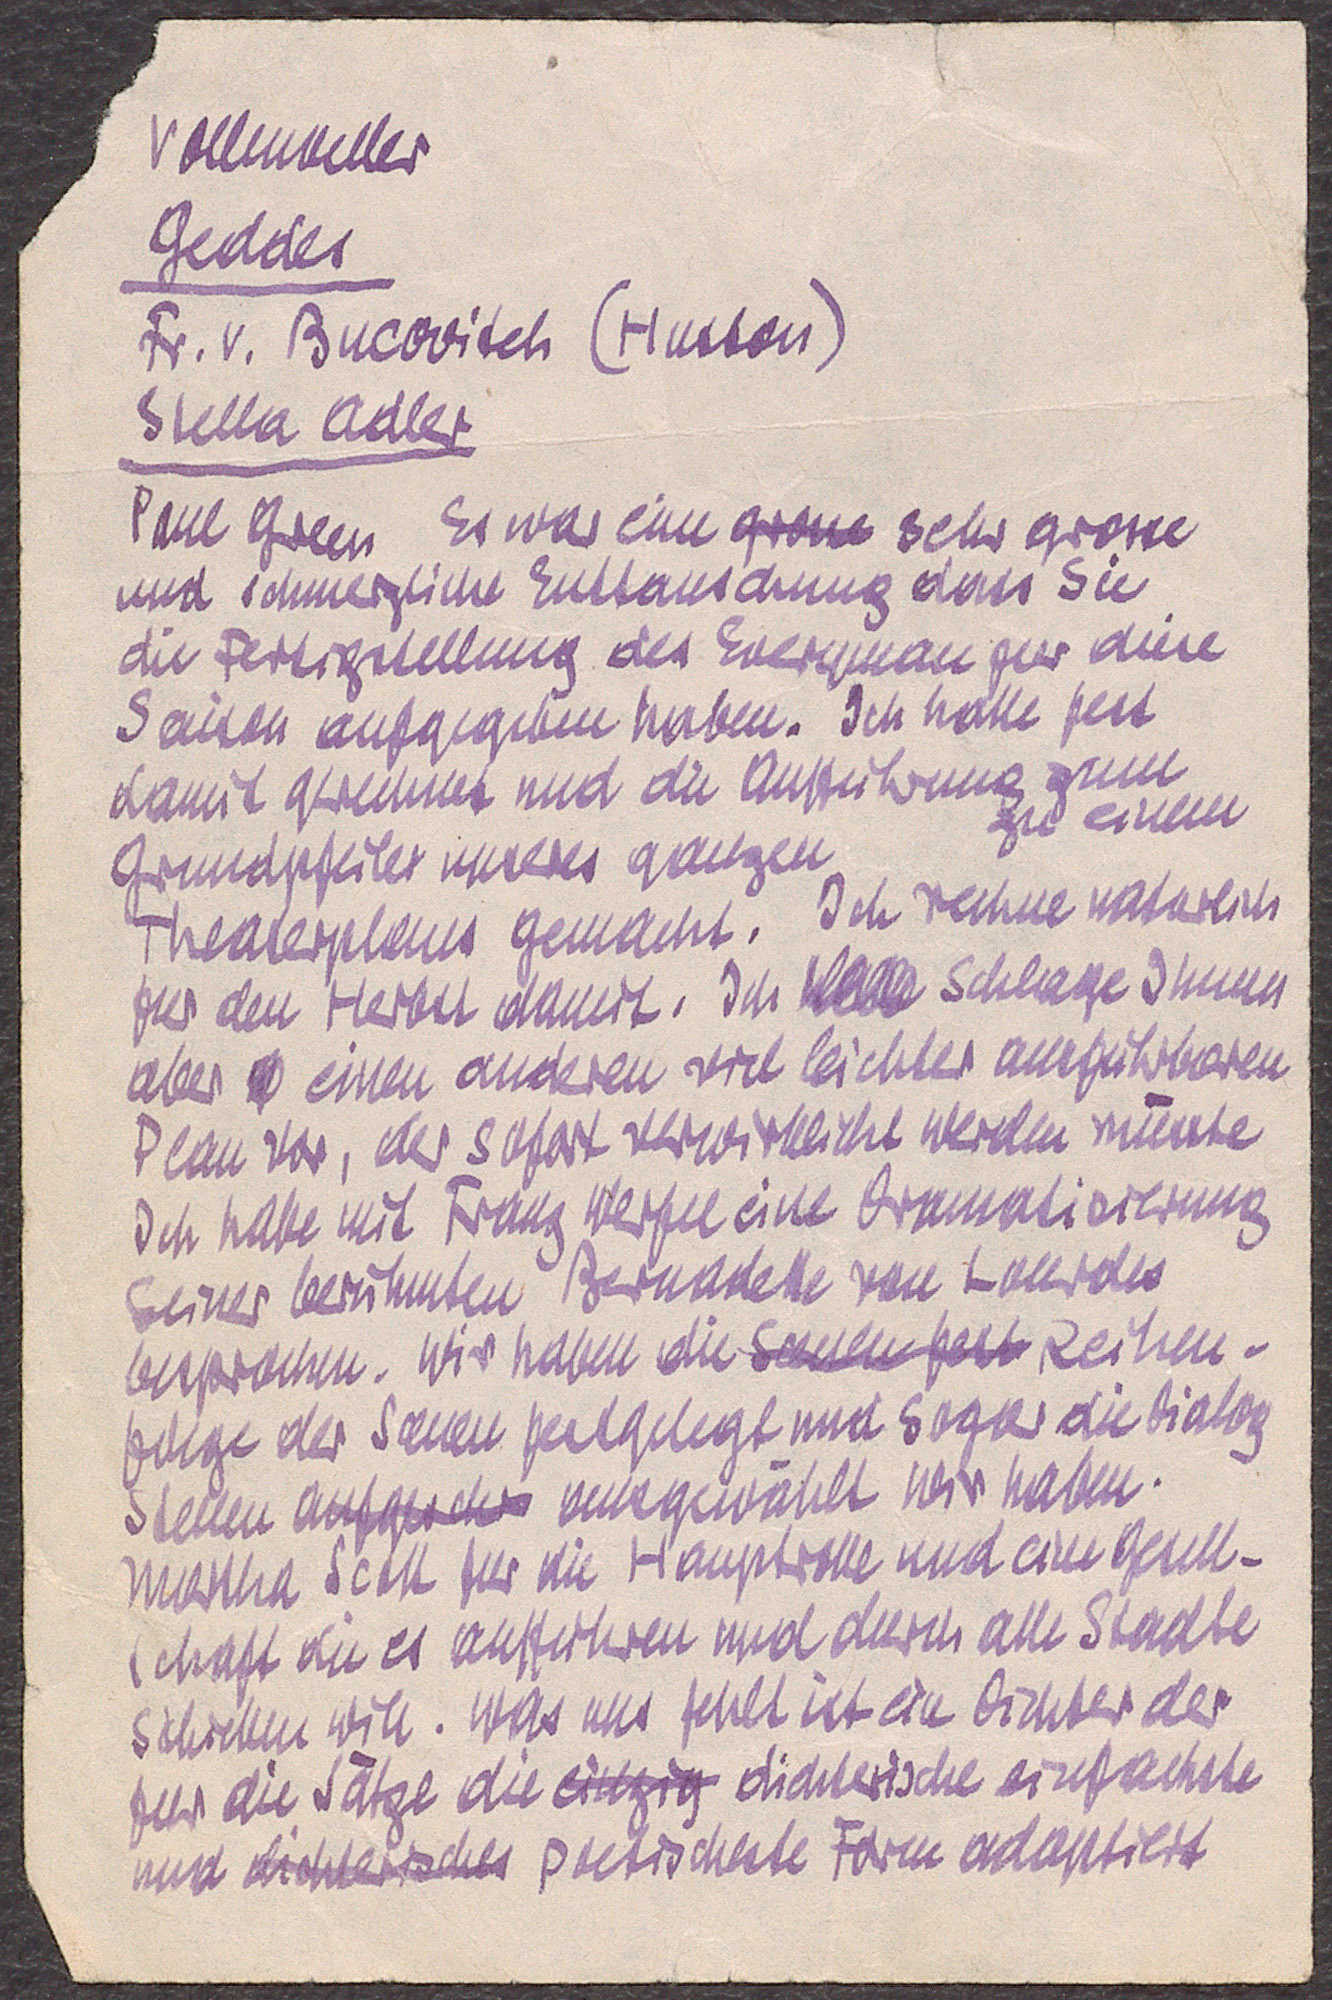 Vollmoeller
Geddes
Fr. v. Bucovitch (Huston)
Stella Adler
Paul Green Es war eine grosse sehr grosse
und schmerzliche Enttauschung dass Sie
die Fertigstellung des Everyman fur diese
Saison aufgegeben haben. Ich hatte fest
damit gerechnet und die Aufführung zum
zu einem
Grundpfeiler unseres ganzen
Theaterplans gemacht. Ich rechne naturlich
fur den Herbst damit. Ich schlage Ihnen
aber einen anderen viel leichter ausführbaren
Plan vor, der sofort verwirklicht werden müsste
Ich habe mit Franz Werfel eine Dramatisierung
seiner berühmten Bernadette von Lourdes
besprochen. Wir haben die Scenen fest Reihen-
folge der Scenen festgelegt und sogar die Dialog
Stellen ausgewählt Wir haben.
Martha Scott fur die Hauptrolle und eine Gesell-
schaft die es aufführen und durch alle Stadte
schicken will. Was uns fehlt ist ein Dichter der
fur die Sätze die einzig dichterische einfachste
und dichterisches poetischeste Form adaptiert